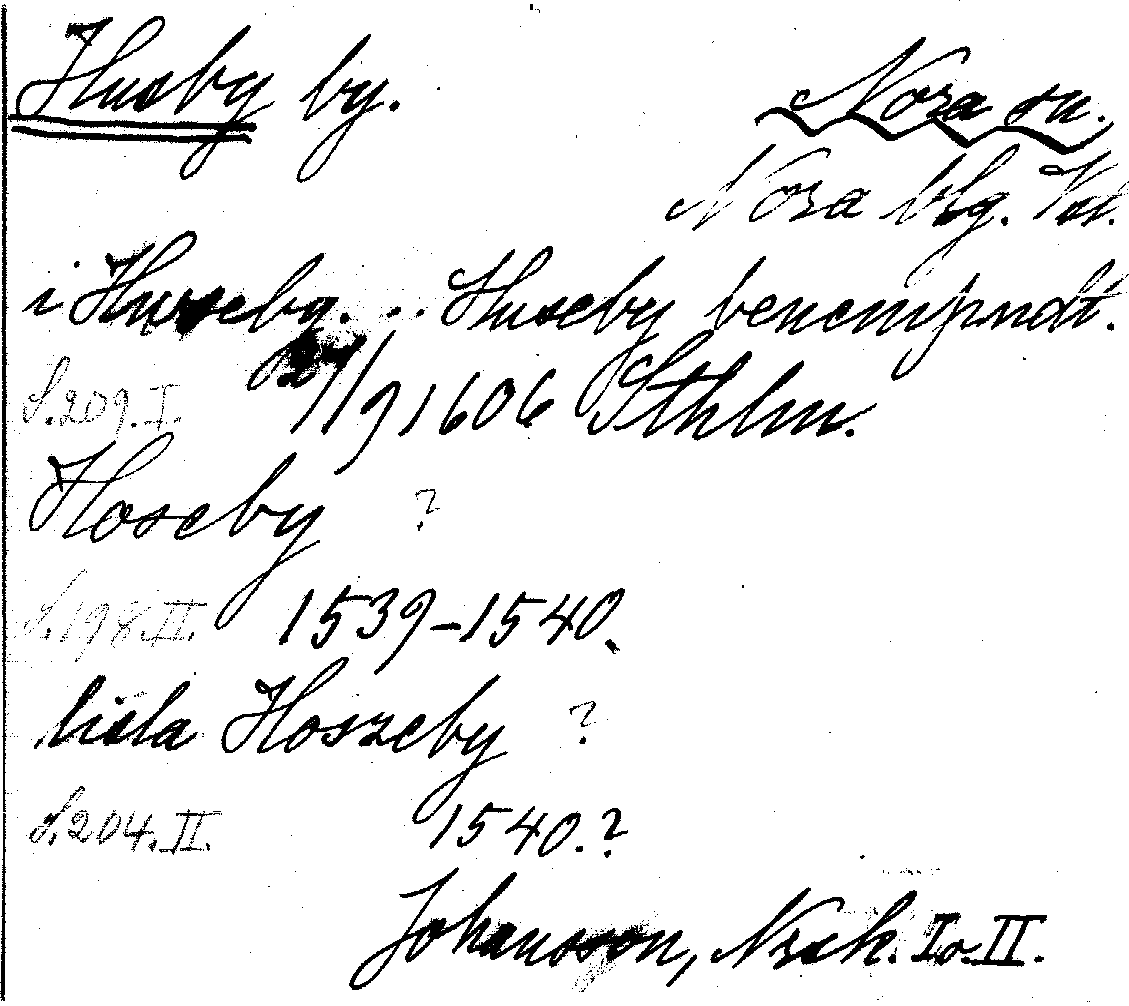 Husby by. Nora sn.
Nora blg. Vstl.
i Huseby. . . Huseby benempndt.
S. 209. I. 24/9 1606 Sthlm.
Hoseby ?
S. 198. II. 1539-1540.
lisla Hoszeby ?
S. 204. II. 1540. ?
Johansson, Nrsk. I o. II.